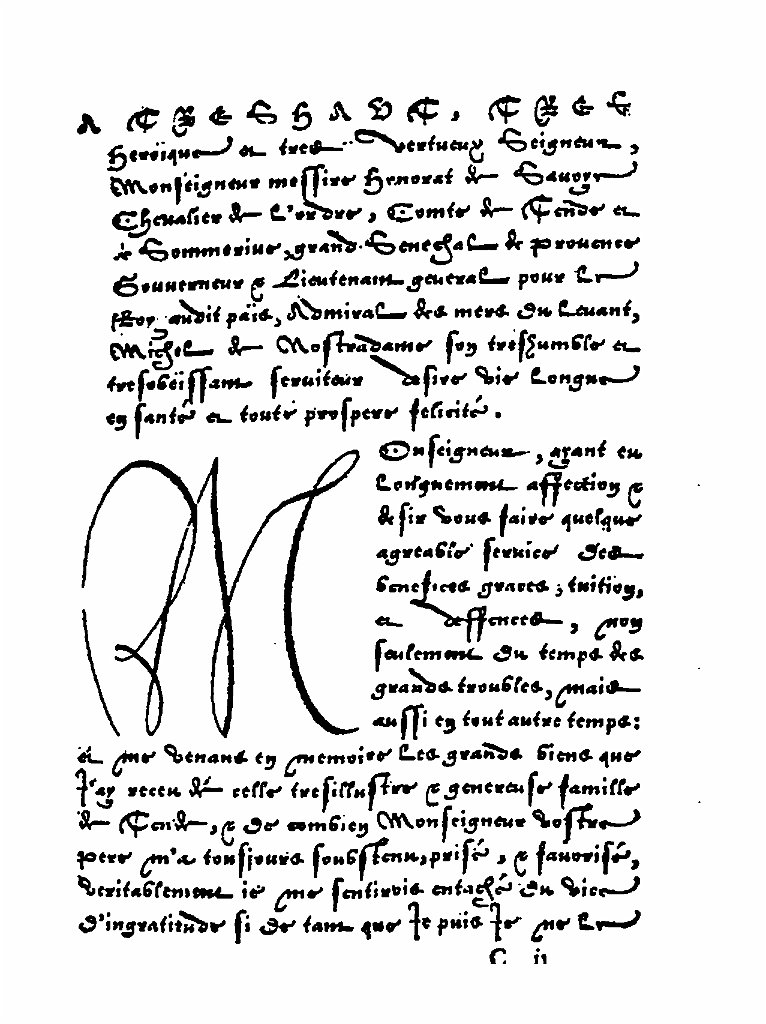 A TRESHAVT, TRES
Heroïque et tres vertueux Seigneur,
Monseigneur messire Henorat de Sauoye
Cheualier de L'ordre, Comte de Tende et
de Sommeriue, grand Seneschal de prouence
Gouuerneur & Lieutenant general pour le
Roy audit païs, Admiral des mers du Leuant,
Michel de Nostradame son treshumble et
tresobeïssant seruiteur desire vie longue
en santé et toute prospere felicité.
MOnseigneur, ayant eu
Longuement affection &
desir vous faire quelque
agreable seruice des
benefices graces, tuition,
et deffences, non
seulement du temps des
grands troubles, mais
aussi en tout autre temps:
et me venans en memoire les grands biens que
J'ay receu de celle tresillustre & genereuse famille
de Tende, & de combien Monseigneur vostre
pere m'a tousjours soubstenu, prisé, & fauorisé,
veritablement ie me sentirois entaché du vice
d'ingratitude si de tant que Je puis Je ne le
C ij